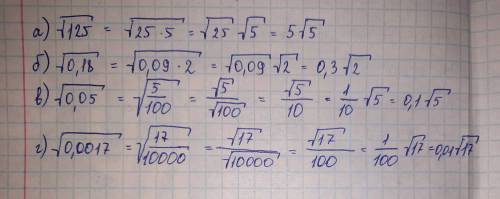 а) √125 = √25·5 = √25 √5 = 5√5
б) √0,18 = √0,09·2 = √0,09 √2 = 0,3√2
в) √0,05 = √5/100 = √5/√100 = √5/10 = 1/10 √5 = 0,1√5
г) √0,0017 = √17/10000 = √17/√10000 = √17/100 = 1/100 √17 = 0,01√17